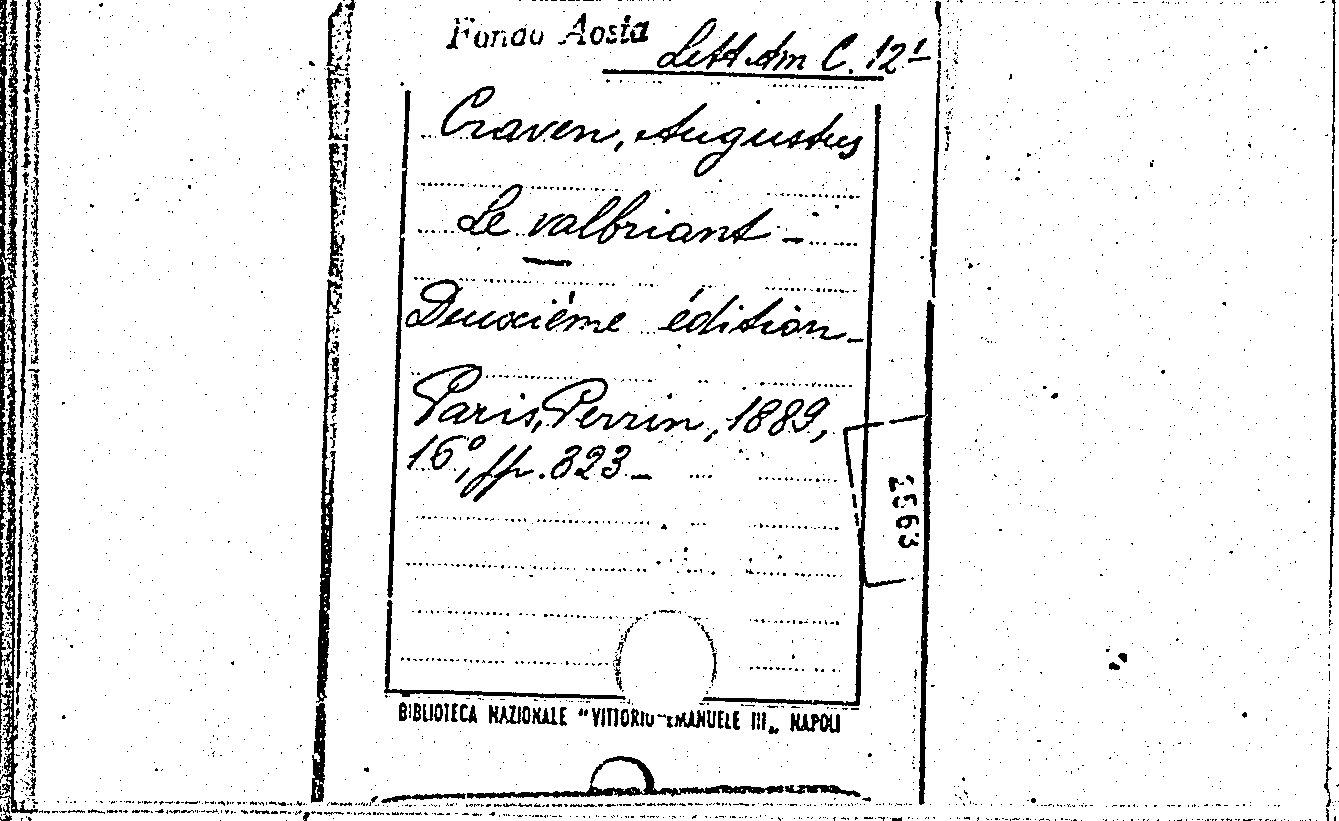 Fondo Aosta
Lett. Am C. 12¹
Craven, Augustus
Le valbriant -
Deuxième édition -
Paris, Perrin, 1889,
16°, pp. 323 -
2563
BIBLIOTECA NAZIONALE "VITTORIO EMANUELE III„ NAPOLI